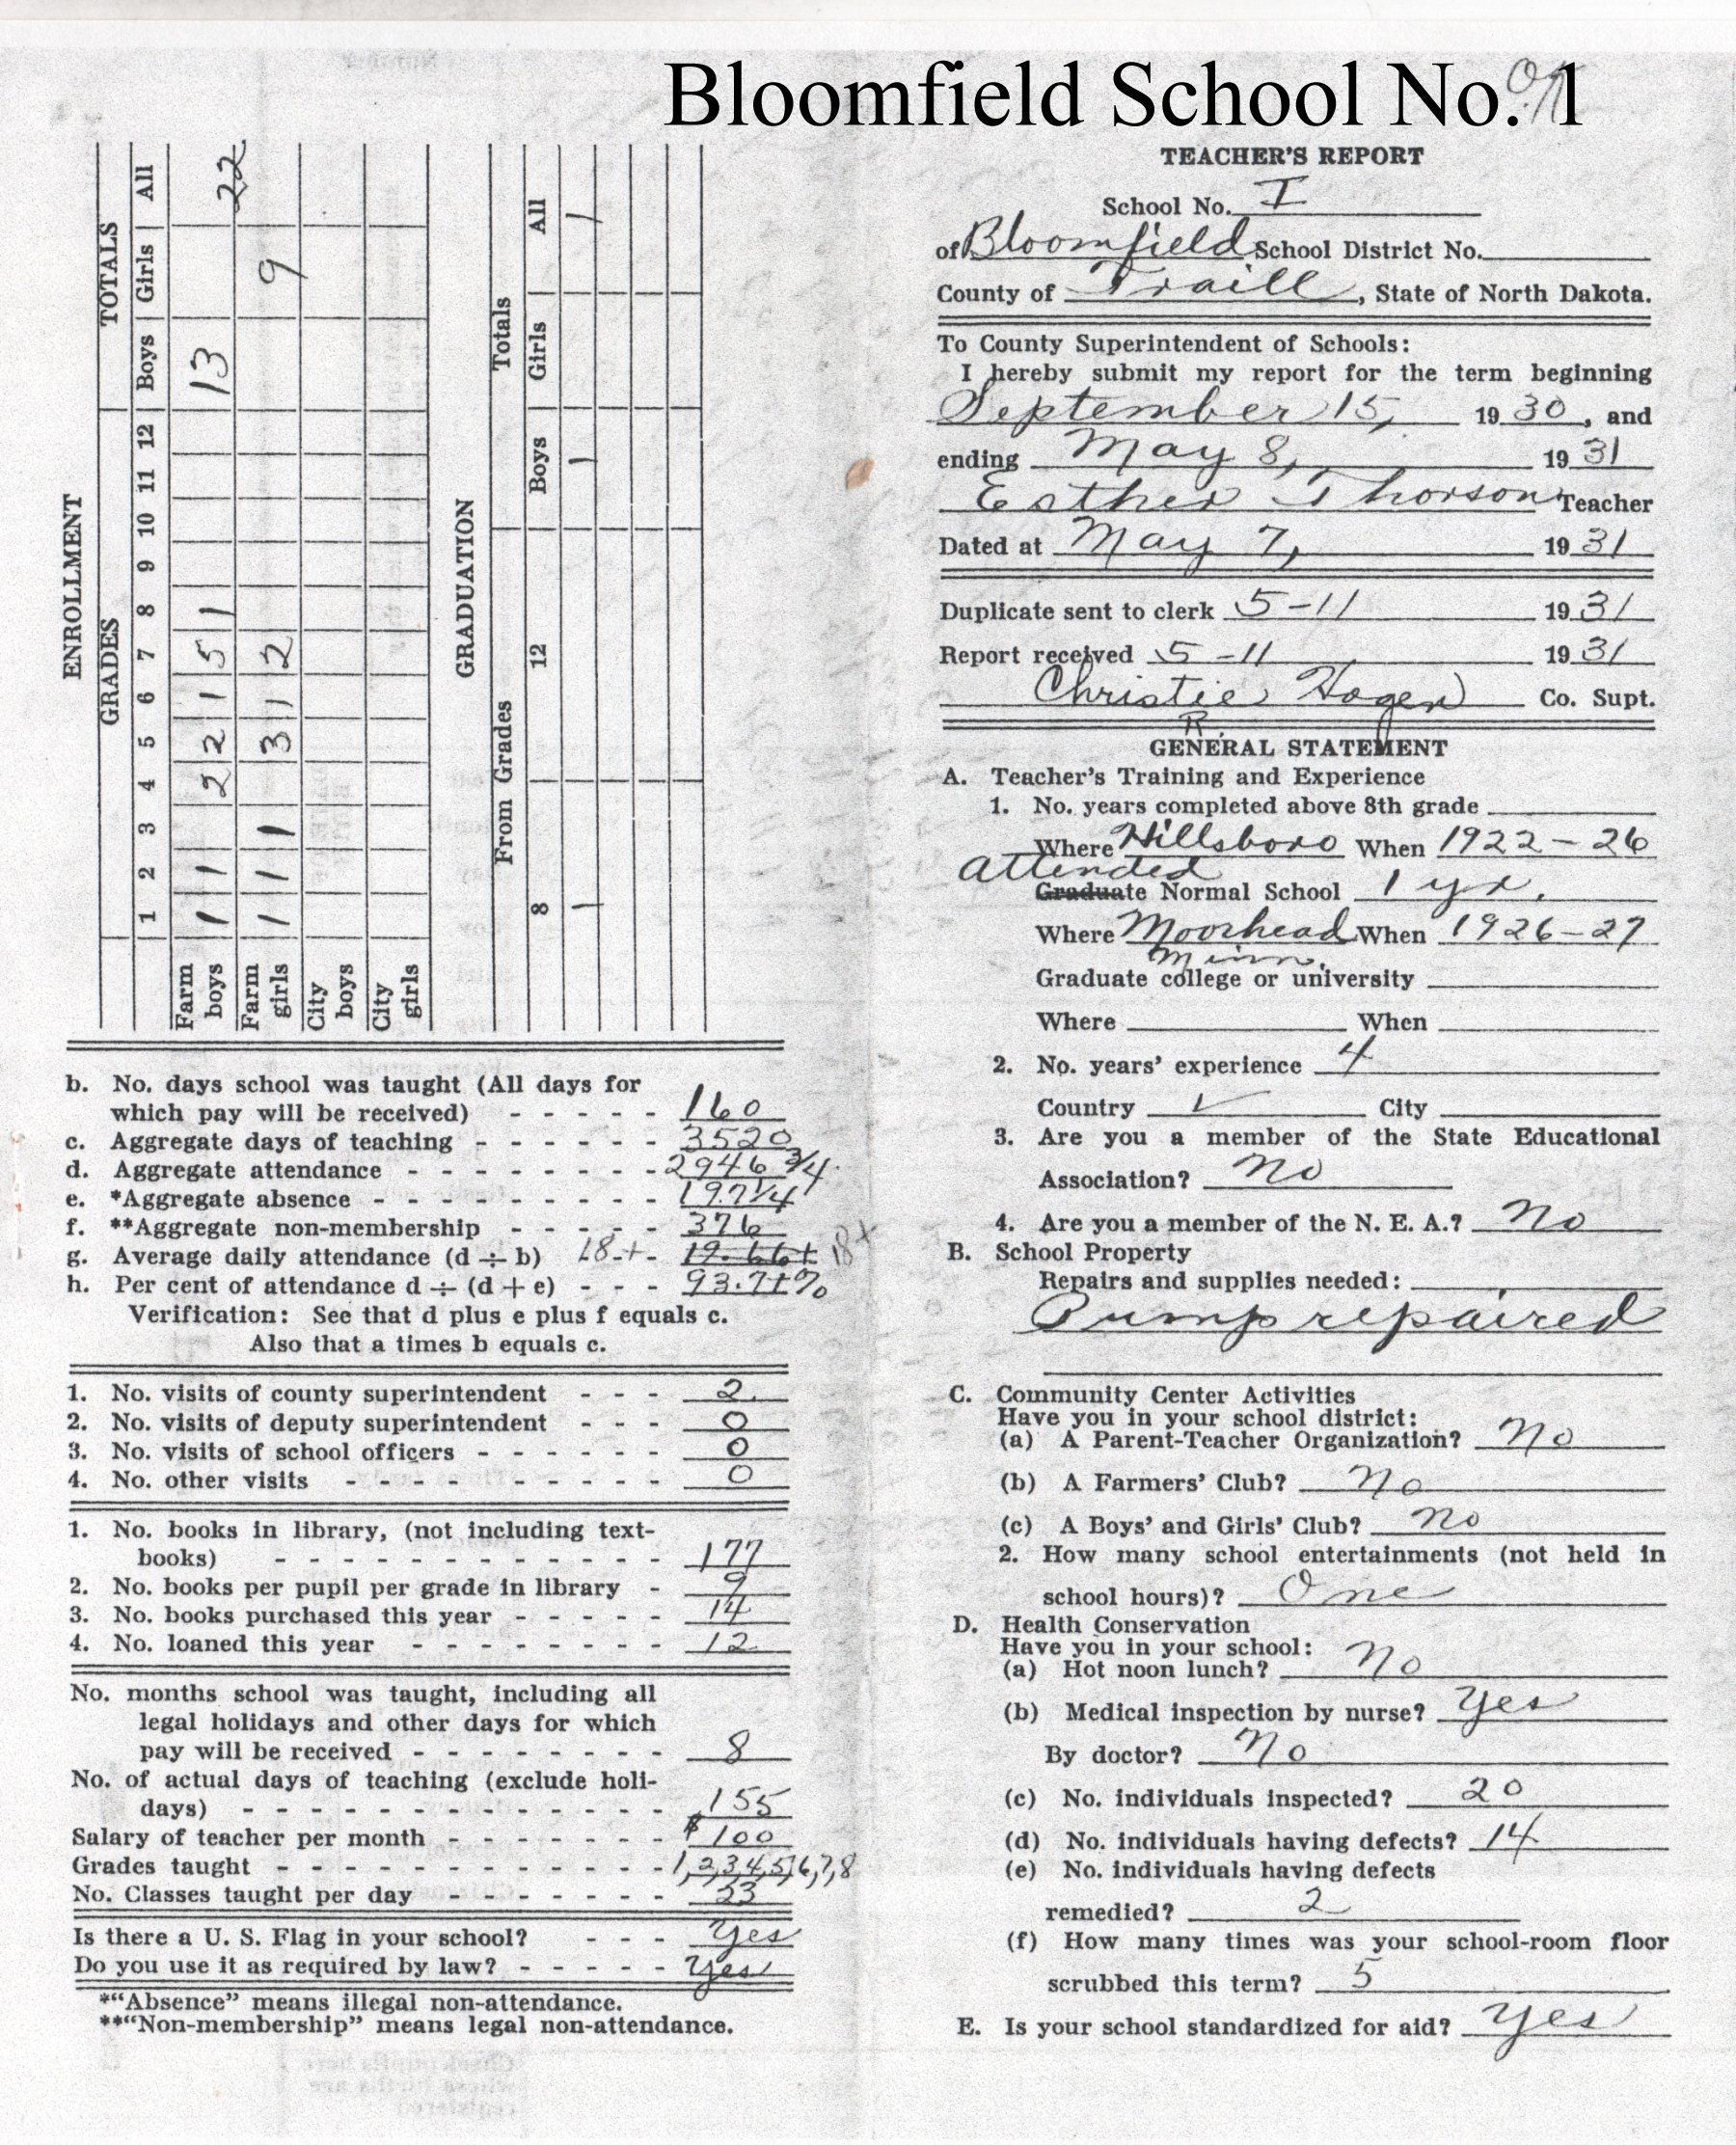 Bloomfield School No. 1
ENROLLMENT
GRADES TOTALS
1 2 3 4 5 6 7 8 9 10 11 12 Boys Girls All
Farm boys 1 1 2 2 1 5 1 13 22
Farm girls 1 1 1 3 1 2 9
City boys
City girls
GRADUATION
From Grades Totals
8 12 Boys Girls All
1 1 1
b. No. days school was taught (All days for
which pay will be received) - - - - - 160
c. Aggregate days of teaching - - - - - - 3520
d. Aggregate attendance - - - - - - - - 2946 3/4
e. *Aggregate absence - - - - - - - - - 197 1/4
f. **Aggregate non-membership - - - - - 376
g. Average daily attendance (d ÷ b) 18+ - 19.66+ 18+
h. Per cent of attendance d ÷ (d + e) - - - 93.7+%
Verification: See that d plus e plus f equals c.
Also that a times b equals c.
1. No. visits of county superintendent - - - 2
2. No. visits of deputy superintendent - - - 0
3. No. visits of school officers - - - - - - 0
4. No. other visits - - - - - - - - - - 0
1. No. books in library, (not including text-
books) - - - - - - - - - - - - 177
2. No. books per pupil per grade in library - 9
3. No. books purchased this year - - - - - 14
4. No. loaned this year - - - - - - - - 12
No. months school was taught, including all
legal holidays and other days for which
pay will be received - - - - - - - - 8
No. of actual days of teaching (exclude holi-
days) - - - - - - - - - - - - - 155
Salary of teacher per month - - - - - - - $100
Grades taught - - - - - - - - - - - - 1,2,3,4,5,6,7,8
No. Classes taught per day - - - - - - - 23
Is there a U. S. Flag in your school? - - - Yes
Do you use it as required by law? - - - - - Yes
*"Absence" means illegal non-attendance.
**"Non-membership" means legal non-attendance.
TEACHER'S REPORT
School No. I
of Bloomfield School District No.
County of Traill, State of North Dakota.
To County Superintendent of Schools:
I hereby submit my report for the term beginning
September 15, 1930, and
ending May 8, 1931
Esther Thorson Teacher
Dated at May 7, 1931
Duplicate sent to clerk 5-11 1931
Report received 5-11 1931
Christie Hagen Co. Supt.
R
GENERAL STATEMENT
A. Teacher's Training and Experience
1. No. years completed above 8th grade
Where Hillsboro When 1922-26
Attended
Graduate Normal School 1 yr.
Where Moorhead When 1926-27
Minn.
Graduate college or university
Where When
2. No. years' experience 4
Country ✓ City
3. Are you a member of the State Educational
Association? No
4. Are you a member of the N. E. A.? No
B. School Property
Repairs and supplies needed:
Pump repaired
C. Community Center Activities
Have you in your school district:
(a) A Parent-Teacher Organization? No
(b) A Farmers' Club? No
(c) A Boys' and Girls' Club? No
2. How many school entertainments (not held in
school hours)? One
D. Health Conservation
Have you in your school:
(a) Hot noon lunch? No
(b) Medical inspection by nurse? Yes
By doctor? No
(c) No. individuals inspected? 20
(d) No. individuals having defects? 14
(e) No. individuals having defects
remedied? 2
(f) How many times was your school-room floor
scrubbed this term? 5
E. Is your school standardized for aid? Yes